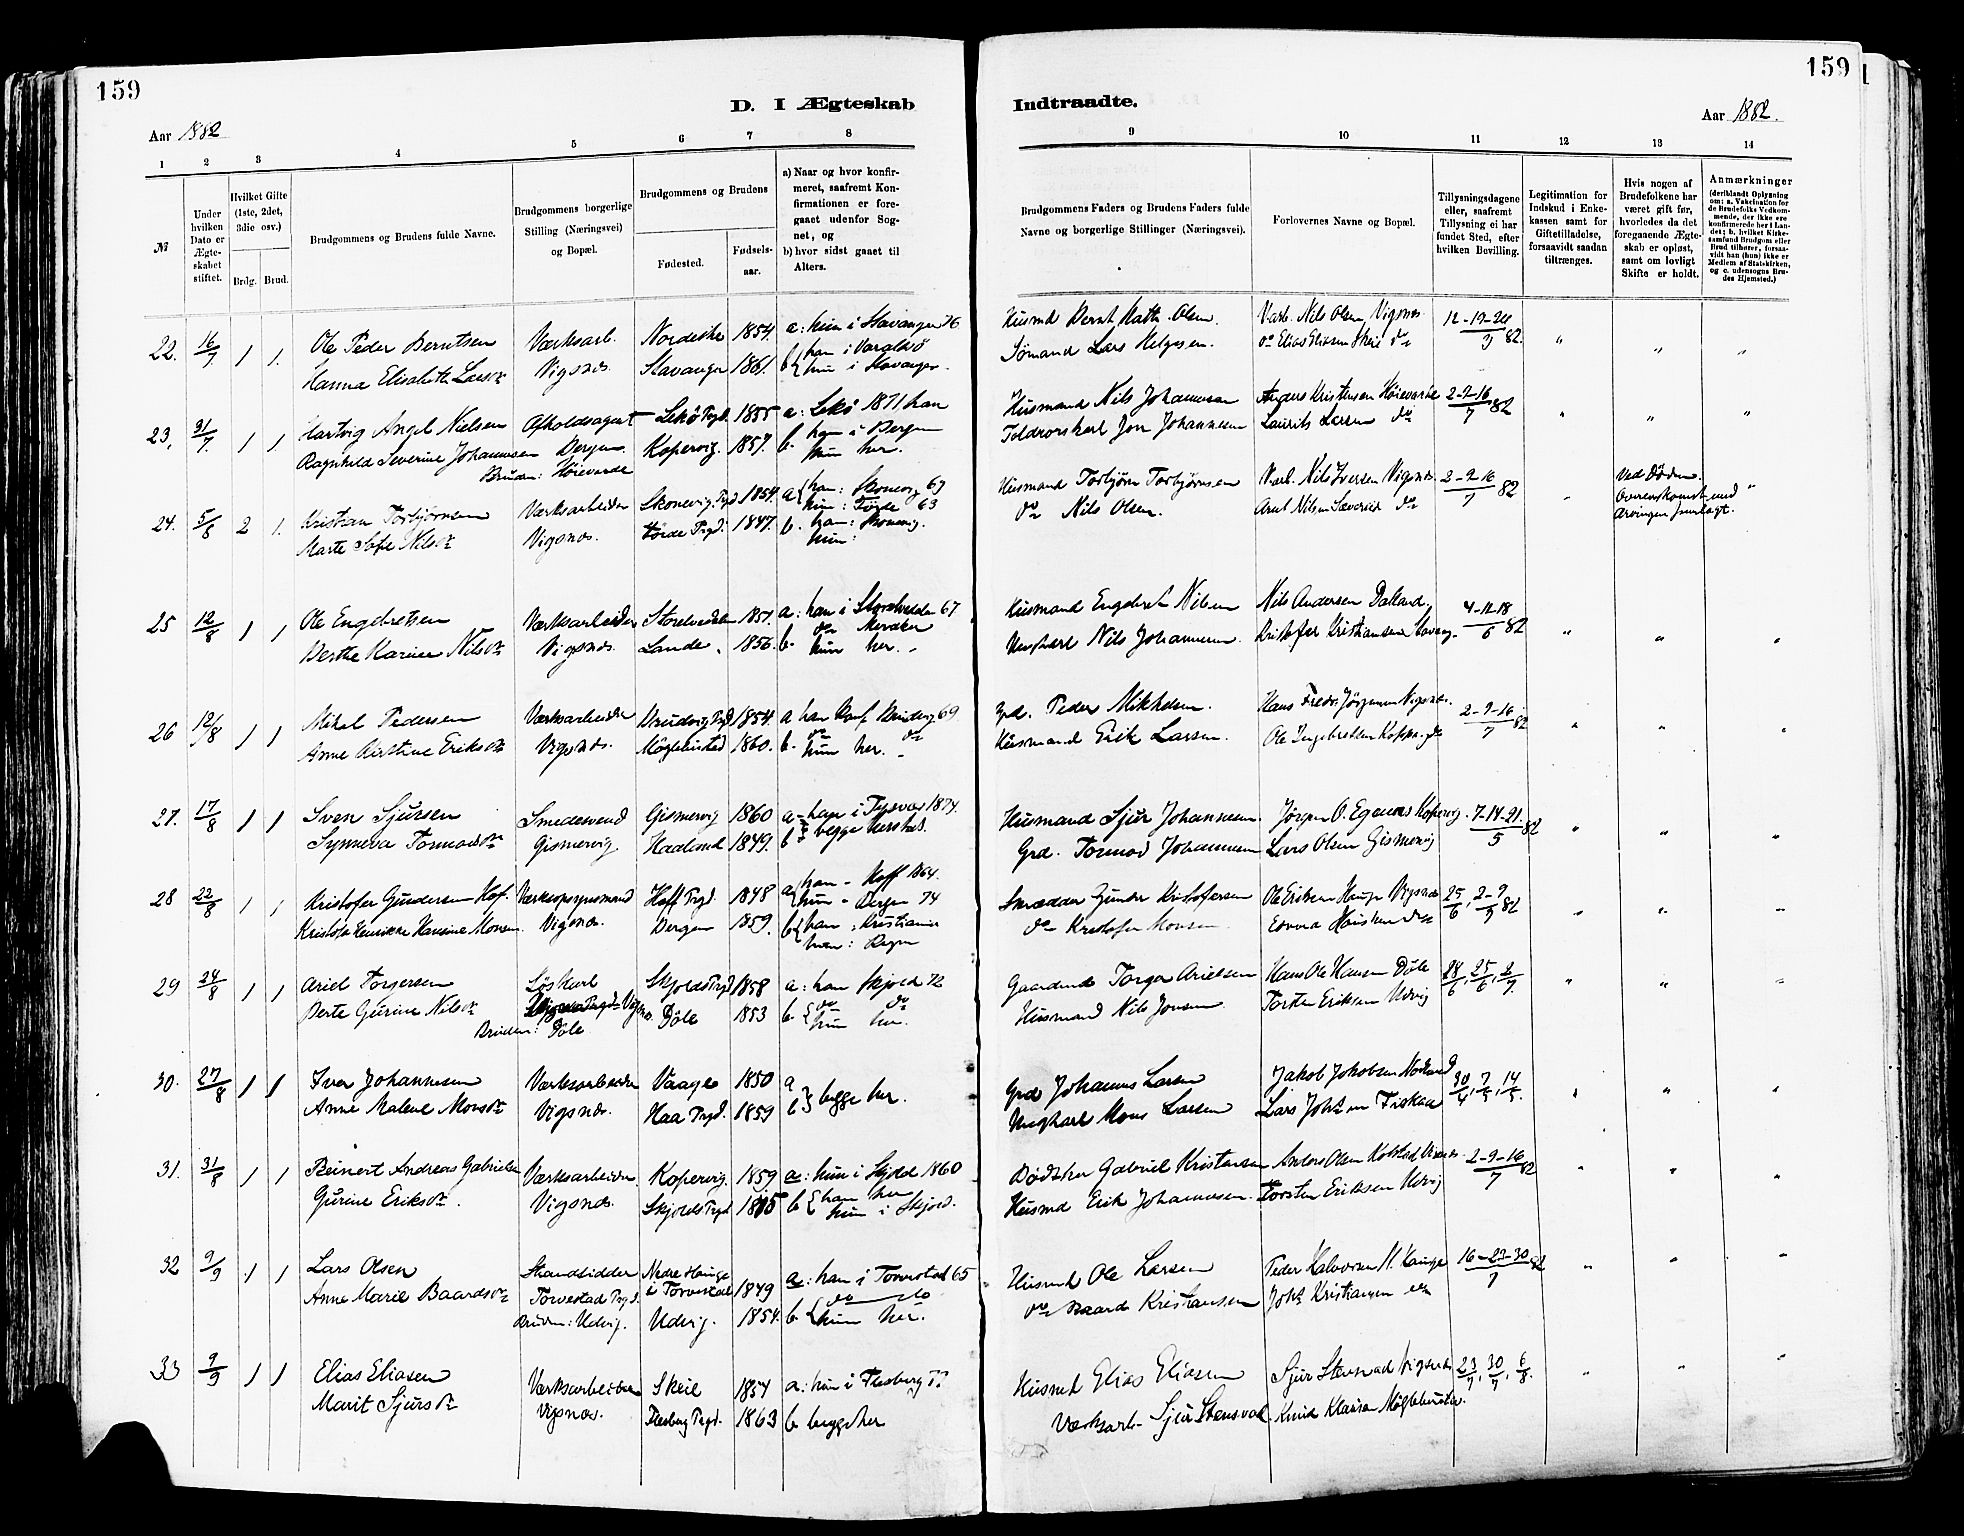 159
159
D. I Ægteskab
Indtraadte.
Aar 1882
Aar 1882.
1 2 3 4 5 6 7 8
9 10 11 12 13 14
№
Under hvilken Dato er Ægteskabet stiftet.
Hvilket Gifte (1ste, 2det, 3die osv.)
Brdg. Brud.
Brudgommens og Brudens fulde Navne.
Brudgommens borgerlige Stilling (Næringsvei) og Bopæl.
Brudgommens og Brudens
Fødested.
Fødselsaar.
a) Naar og hvor konfirmeret, saafremt Konfirmationen er foregaaet udenfor Sognet, og
b) hvor sidst gaaet til Alters.
Brudgommens Faders og Brudens Faders fulde Navne og borgerlige Stillinger (Næringsvei).
Forlovernes Navne og Bopæl.
Tillysningsdagene eller, saafremt Tillysning ei har fundet Sted, efter hvilken Bevilling.
Legitimation for Indskud i Enkekassen samt for Giftetilladelse, forsaavidt saadan tiltrænges.
Hvis nogen af Brudefolkene har været gift før, hvorledes da det foregaaende Ægteskab er opløst, samt om lovligt Skifte er holdt.
Anmærkninger
(deriblandt Oplysning om: a. Vakcination for de Brudefolks Vedkommende, der ikke ere konfirmerede her i Landet; b. hvilket Kirkesamfund Brudgom eller Brud tilhører, forsaavidt han (hun) ikke er Medlem af Statskirken, og c. udensogns Brudes Hjemsted.)
22. 16/7. 1 1. Ole Peder Berntsen Værksarb. 1854. a: hun i Stavanger 76
Hanna Elisabeth Larsdtr Vigsnæs. Stavanger 1861. b{ han i
hun i Stavanger.
Lars Helgesen. Varb. Nils Olsen Vigsnæs. 12-19-24 82.
do Elias Eliasen Skeie do
23. 31/7. 1 1. Hartvig Angel Nielsen Afholdsagent Lekø Prgd. 1855 a: Lekø 1871 han
Ragnhild Severine Johannesen Bergen Kopervig. 1857. b. han i Bergen
Bruden: Høievarde hun her.
Husmand Nils Johannesen Anders Kristensen Høievarde 2-9-16/7 82
Jon Johannesen Laurits Larsen do
24. 5/8 2 1. Kristian Torbjørnsen Værksarbeider Skonevig Prgd 1854. a{ han: Skonevig 69
Marte Sofie Nilsdtr Vigsnæs. Førde Prgd. 1847. hun: Førde 63
b. han: Skonevig.
hun:
Husmand Torbjørn Torbjørnsen Nils Iversen Vigsnæs 2-9-16/7 82
do Nils Olsen. do
Ved Døden.
Overenskomst med
Arvingen fremlagt.
25 12/8 1 1 Ole Engebretsen Værksarbeider Storelvedalen 1857. a: han i Storelvedalen 67
Berthe Karine Nilsdtr Vigsnæs. Lande. 1856. b. do Meraker
hun her.
Husmand Engebret Nilsen Nils Andersen Dalland. 4-11-18/6 82
Nils Johannesen. Kristofer Kristiansen
26 12/8 1 1 Mikal Pedersen Værksarbeider 1854. a han Konf. 69
Anne Kirstine Eriksdtr Vigsnæs. 1860. b. do do
hun her.
Grd. Peder Mikkelsen. Hans Fredr. Jørgensen Vigsnæs. 2-9-16/7 82
Husmand Erik Larsen. Ole Ingebretsen do
27. 17/8 1 1 Sven Sjursen Smedesvend Gismervig 1860 a- han i Tysvær 1874.
Synneva Tormodsdtr Gismervig. Haaland 1849. b begge herstds.
Husmand Sjur Johannesen. Jørgen O. Egenæs Kopervig. 7-14-21./5 82
Grd. Tormod Johannesen Lars Olsen Gismervig
28 22/8 1 1 Kristofer Gundersen Hof. Værksopsynsmand Hoff Prgd. 1848 a{ han - Hoff 1864.
Kristofa Henrikke Hansine Monsen. Vigsnæs. Bergen 1859. hun - Bergen 74
b{ han: Kristiania
hun: Bergen
Skrædder Gunder Kristofersen Ole Eriksen Hauge Vigsnæs 25/6, 2-9/7 82
do Kristofer Monsen. do
29 24/8 1 1 Ariel Torgersen Løskarl Skjolds Prgd 1858 a: han Skjold 72
Berte Gurine Nilsdtr Døle 1853 b. { do do
Bruden: Døle hun her.
Gaardmd Torger Arielsen Hans Ole Hansen Døle 18/6, 25/6, 2/7.
Husmand Nils Jonsen. Torsten Eriksen Udvig
30. 27/8 1 1 Iver Johannesen Værksarbeider Vaage 1850 a
Anne Malene Monsdtr Vigsnæs. Haa Prgd. 1859 b} begge her.
Grd Johannes Larsen Jakob Jakobsen 30/4, 7/5, 14/5.
Mons Larsen Lars Johs.en Fiskaa
31. 31/8 1 1 Reinert Andreas Gabrielsen Værksarbeider Kopervig. 1859 a: hun i Skjold 1860
Gurine Eriksdtr. Vigsnæs. Skjolds Prgd b{ han her
hun i Skjold.
Bødtker Gabriel Kristensen Anders Olsen 2-9-16/7 82
Husmd Erik Johannesen. Torsten Eriksen Udvig
32 9/9 1 1 Lars Olsen Strandsidder Nedre Hauge i Torvestad 1849 a: han i Torvestad 65
Anne Marie Baardsdtr Torvestad Prgd. Udvig. 1854. b. { do do
Bruden: Udvig. hun her.
Husmd Ole Larsen Peder Halvorsen N. Hauge 16-23-30/7 82
do Baard Kristiansen Johs. Kristiansen do
33 9/9 1 1 Elias Eliasen Værksarbeider Skeie 1854 a: hun i Flesberg 77
Marit Sjursdtr Vigsnæs. Flesberg Prgd. 1863 b begge her
Husmd Elias Eliasen Sjur Stensvad Vigsnæs 23/7, 30/7, 6/8.
Værksarb. Sjur Stensvad. Knud Klausen